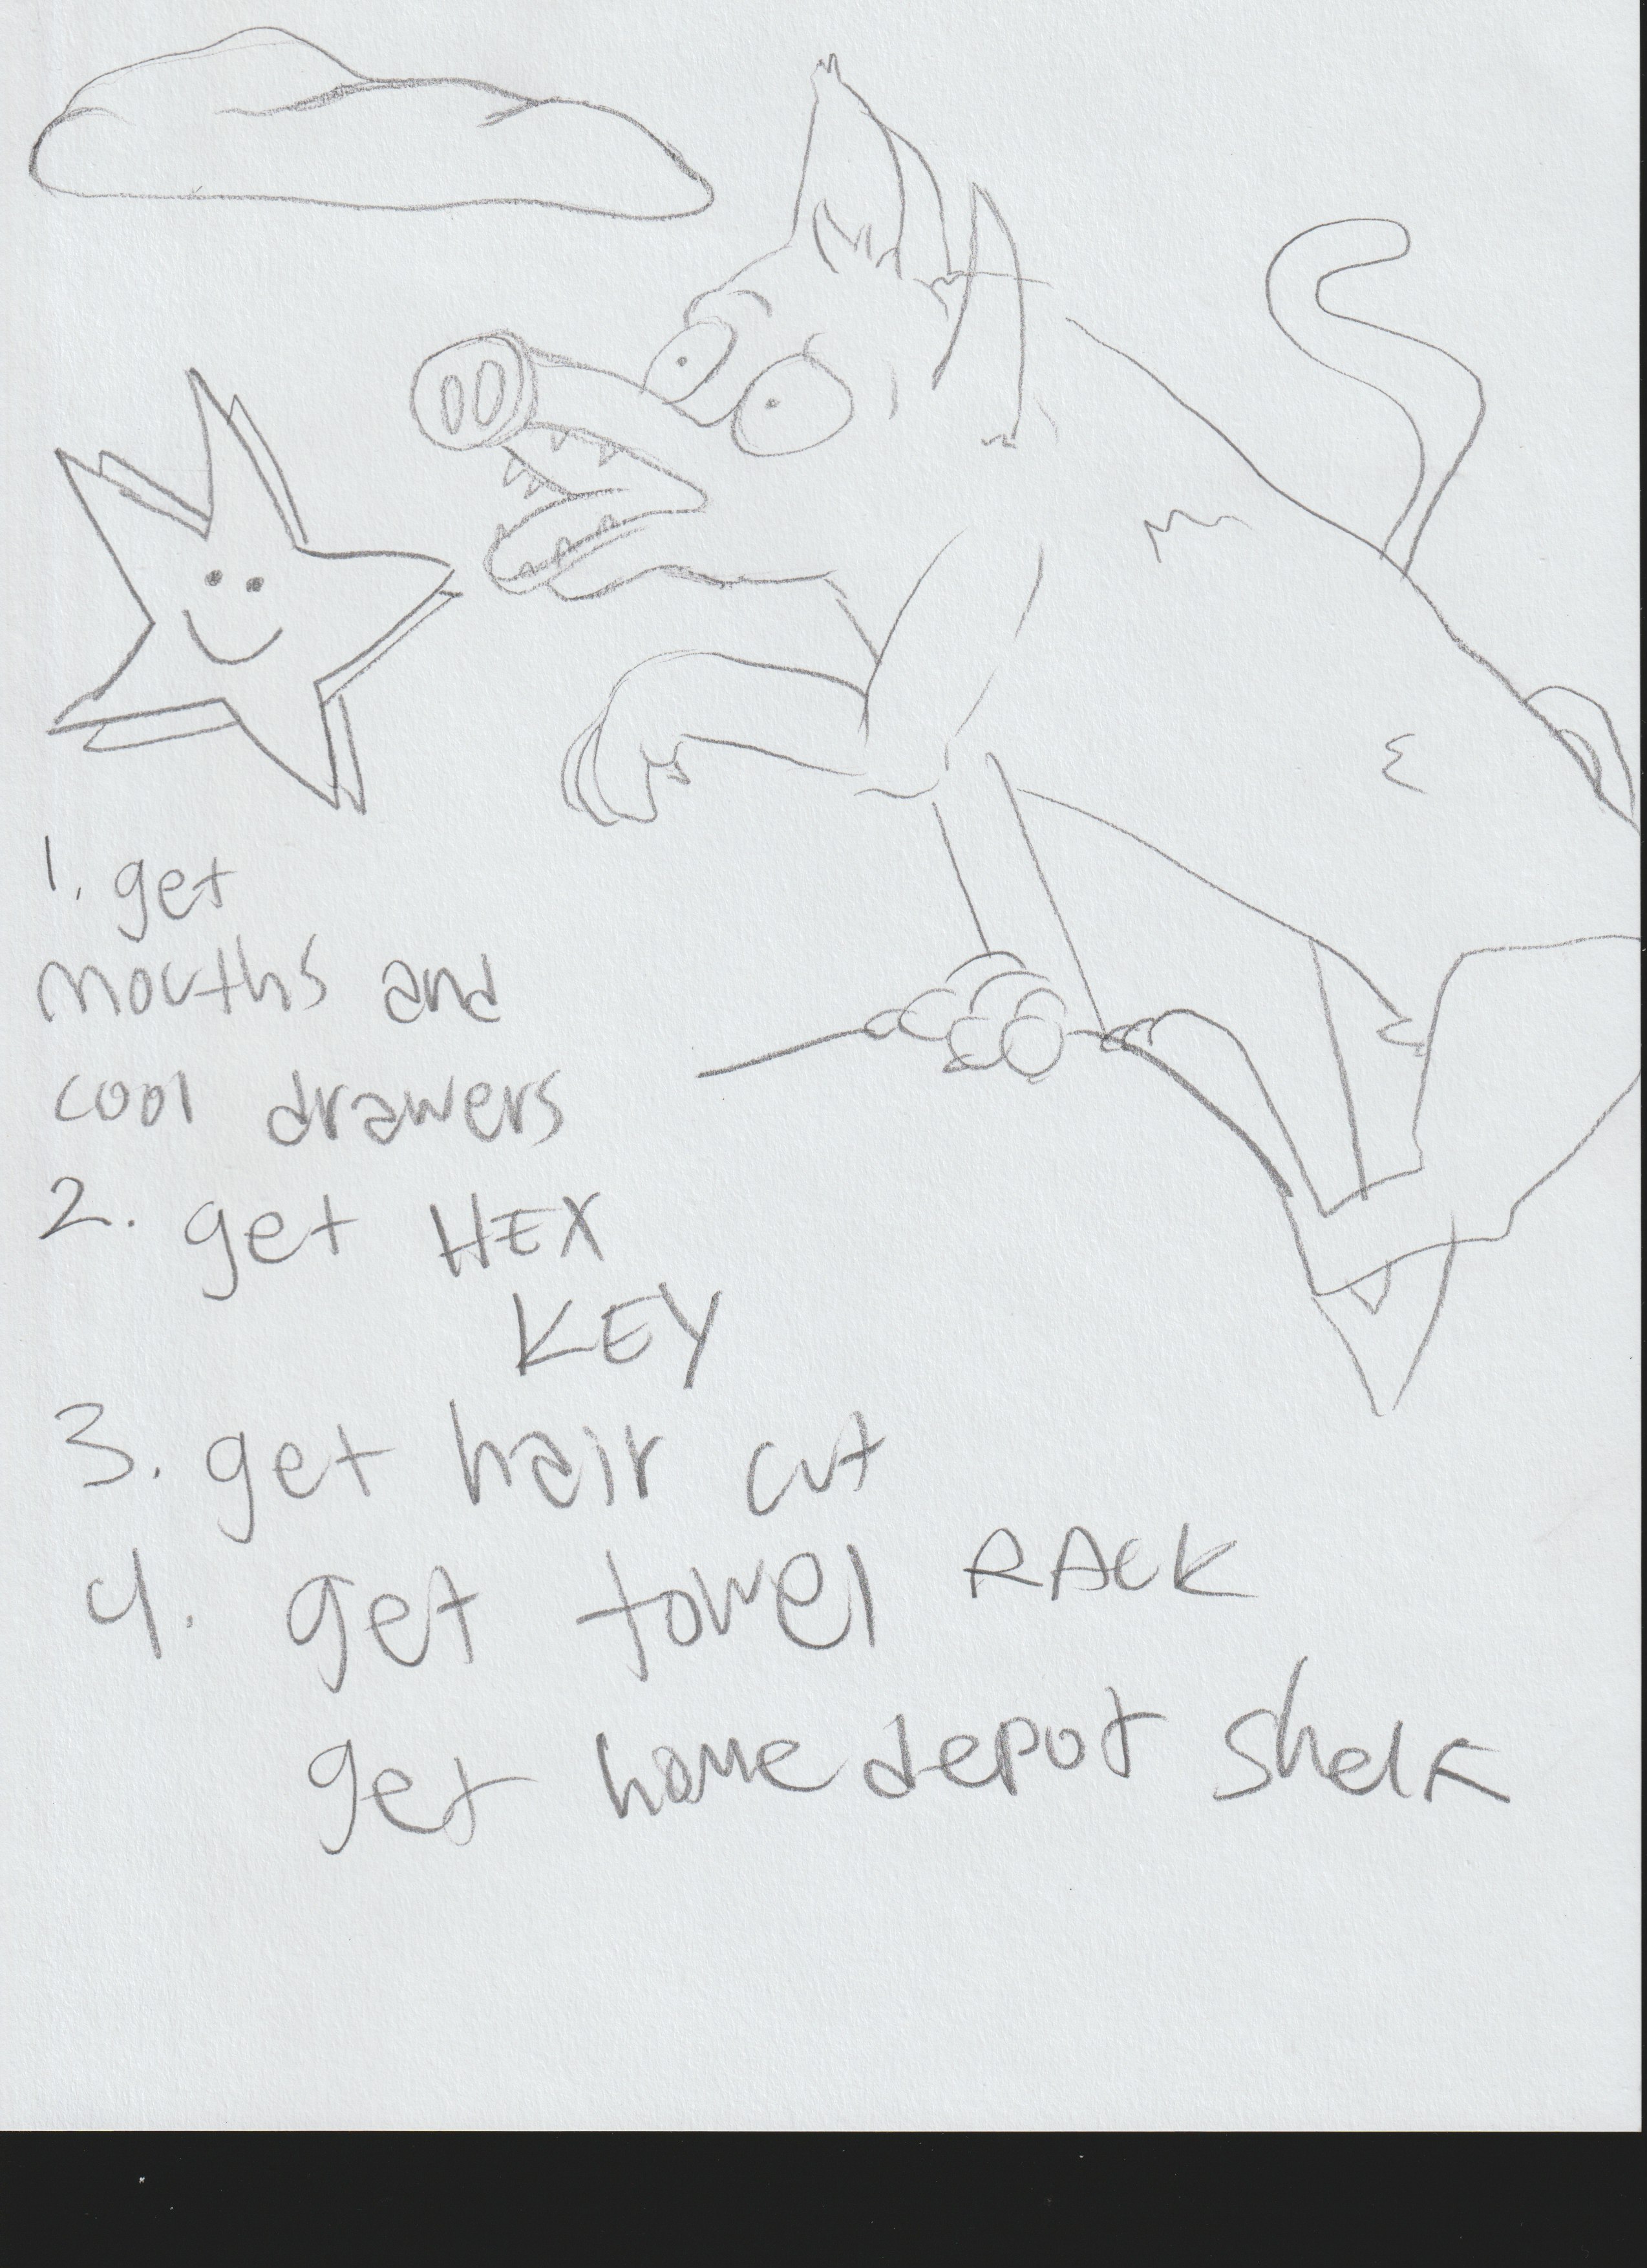 1. get
mouths and
cool drawers
2. get HEX
KEY
3. get hair cut
4. get towel RACK
get home depot shelf